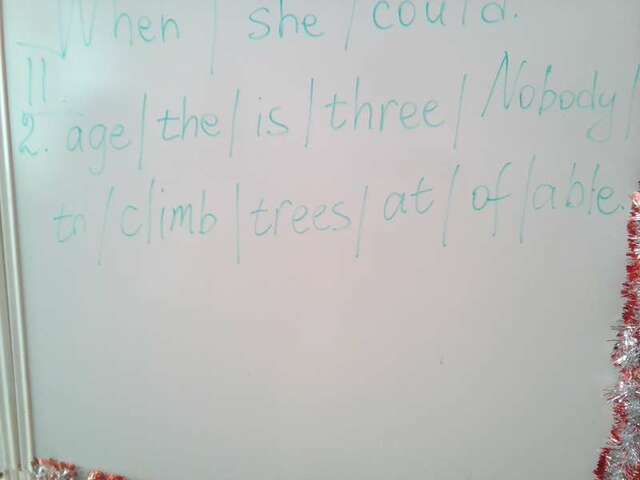 When / she / could.
II.
2. age / the / is / three / Nobody /
to / climb / trees / at / of / able.